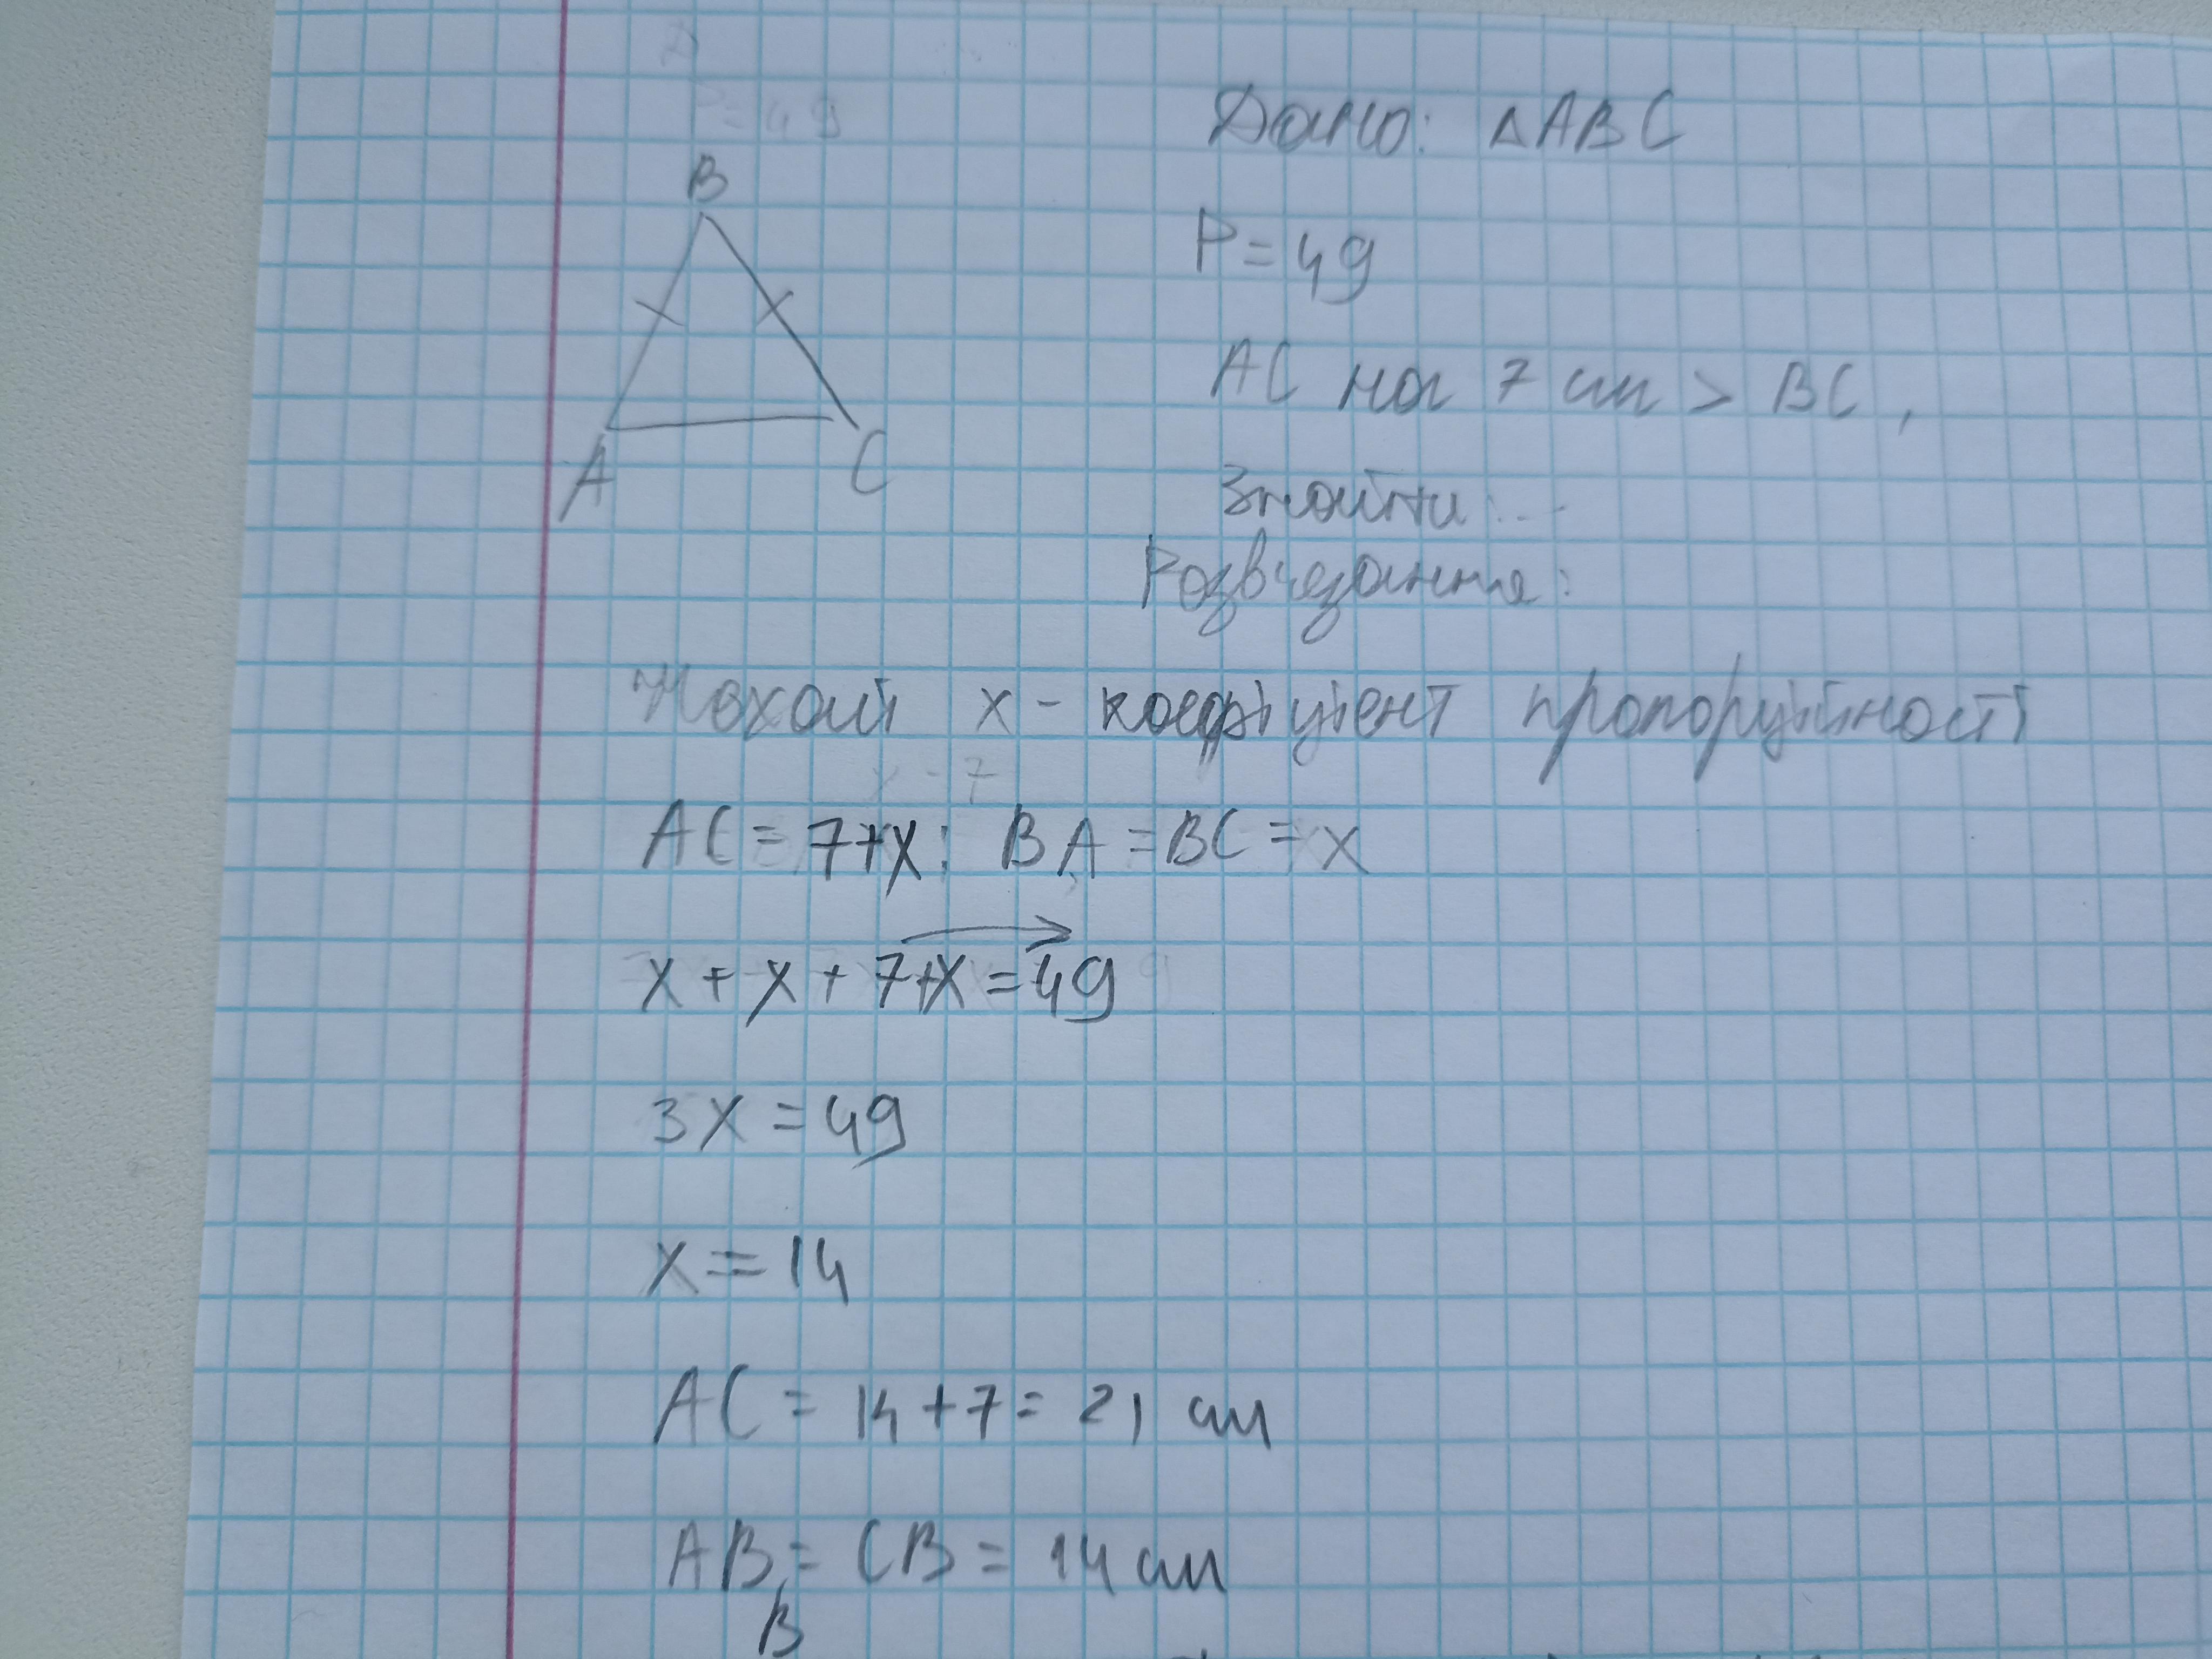 P = 49
B
A
C
Дано: △ABC
P = 49
AC на 7 см > BC,
Знайти: ...
Розвязання:
Нехай x - коефіцієнт пропорційності
x - 7
AC = 7+x; BA = BC = x
x + x + 7+x = 49
3x = 49
x = 14
AC = 14 + 7 = 21 см
AB = CB = 14 см
B